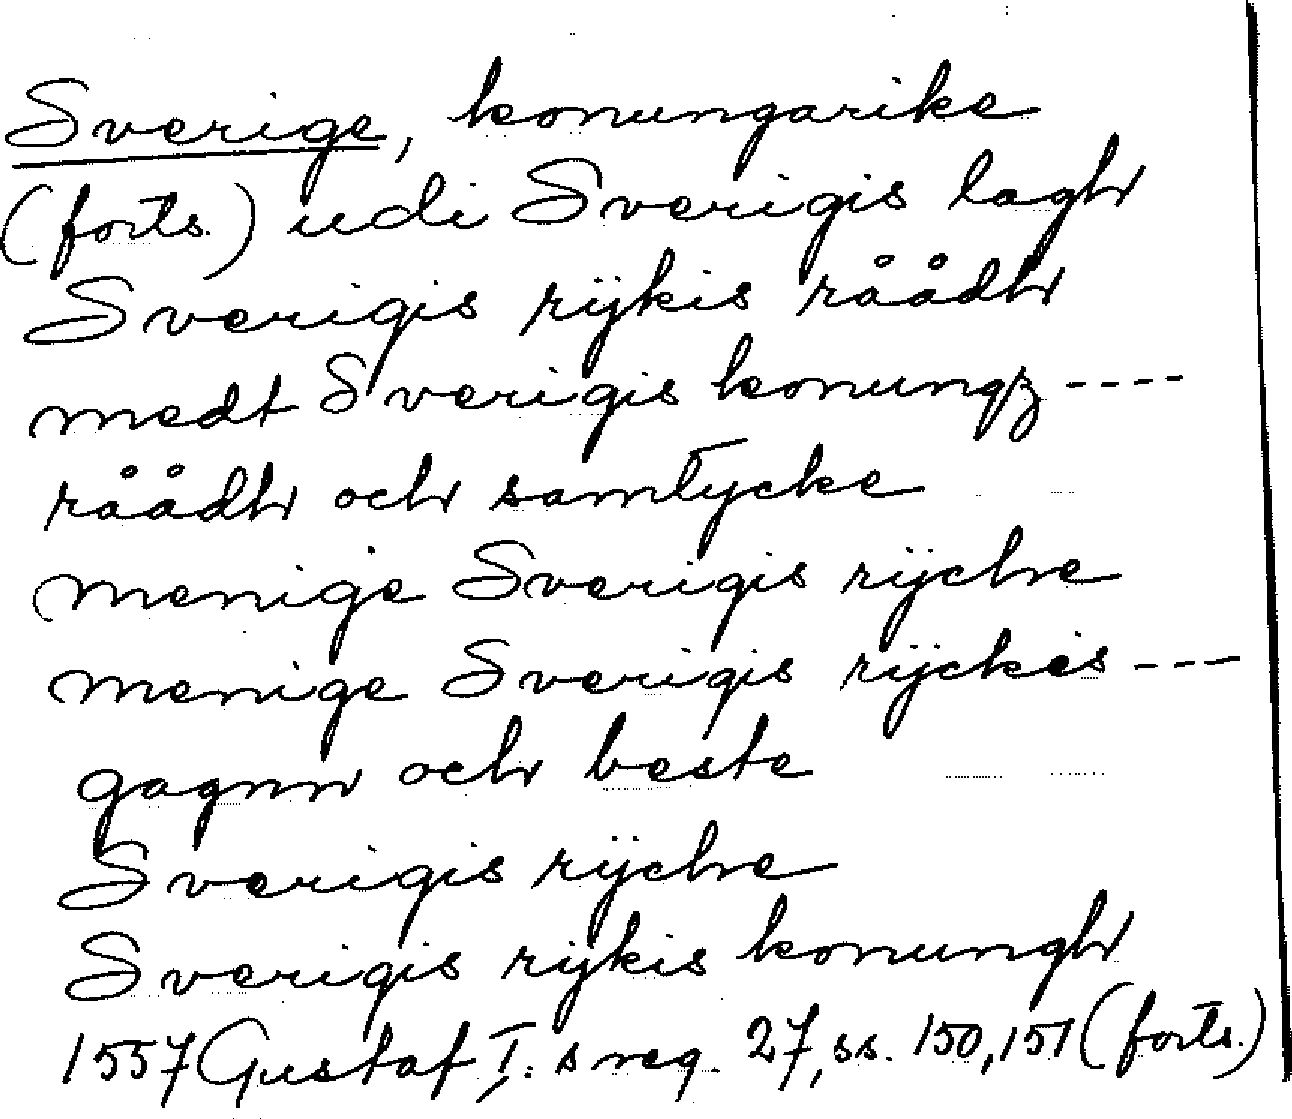 Sverige, konungarike
(forts.) udi Sverigis lagh
Sverigis rijkis råådh
medt Sverigis konungz ----
råådh och samtycke
menige Sverigis rijche
menige Sverigis rijckis ---
gagnn och beste
Sverigis rijche
Sverigis rijkis konungh
1557 Gustaf I:s reg. 27, ss. 150, 151 (forts.)